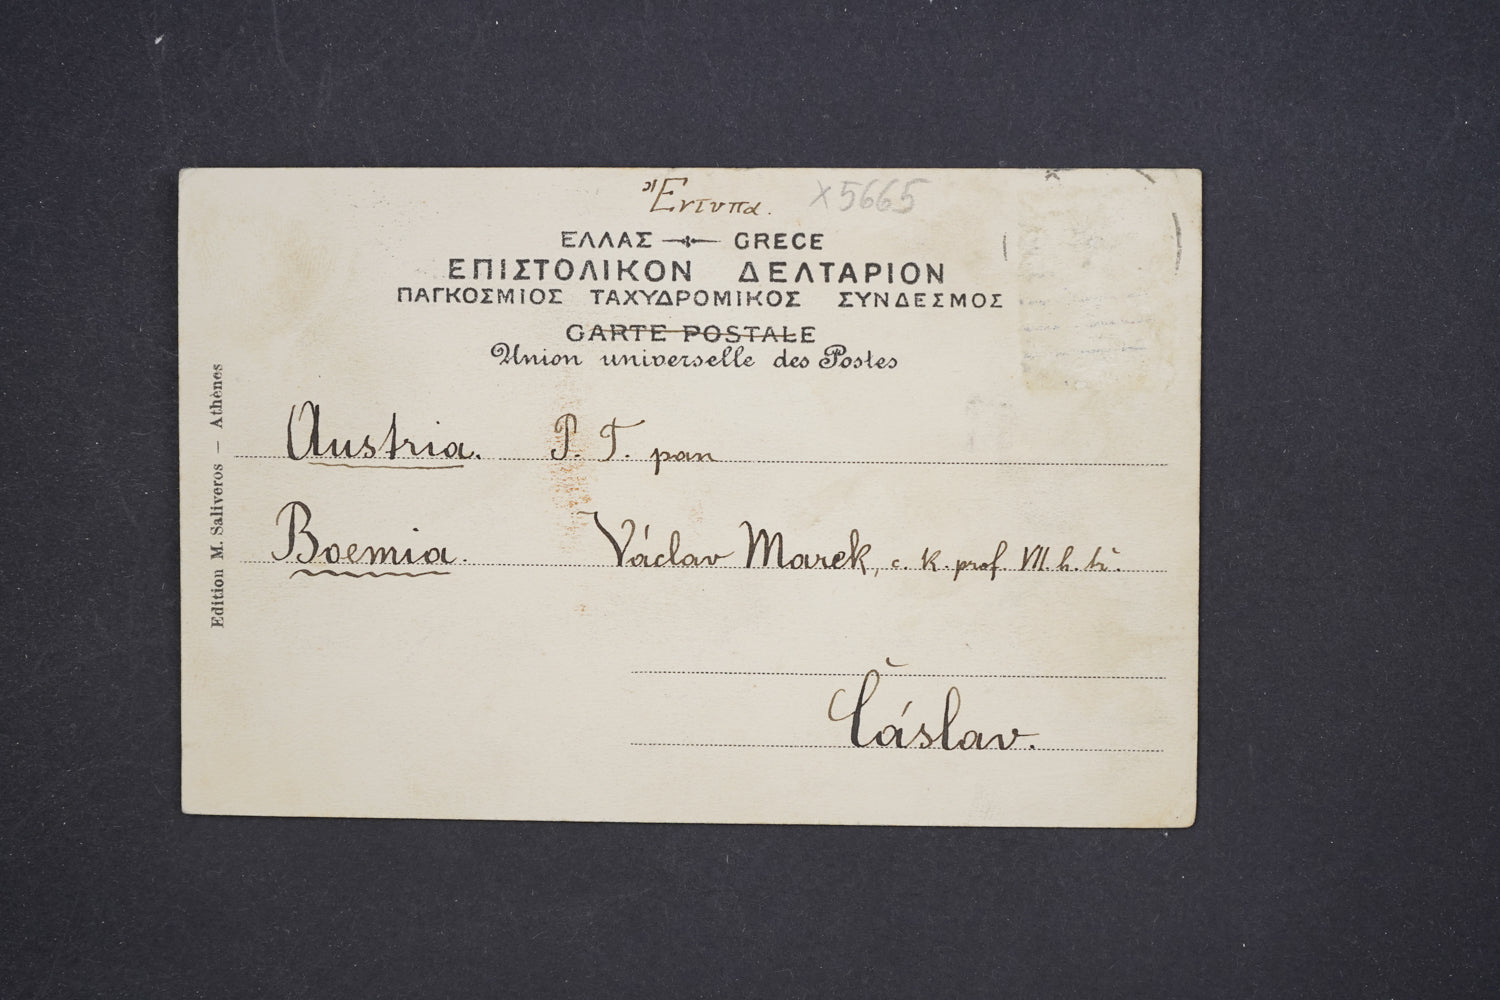 Ἔντυπα.
x5665
ΕΛΛΑΣ GRECE
ΕΠΙΣΤΟΛΙΚΟΝ ΔΕΛΤΑΡΙΟΝ
ΠΑΓΚΟΣΜΙΟΣ ΤΑΧΥΔΡΟΜΙΚΟΣ ΣΥΝΔΕΣΜΟΣ
CARTE POSTALE
Union universelle des Postes
Austria. P. T. pan
Boemia. Václav Marek, c. k. prof VII. h. tř.
Čáslav.
Edition M. Saliveros — Athènes